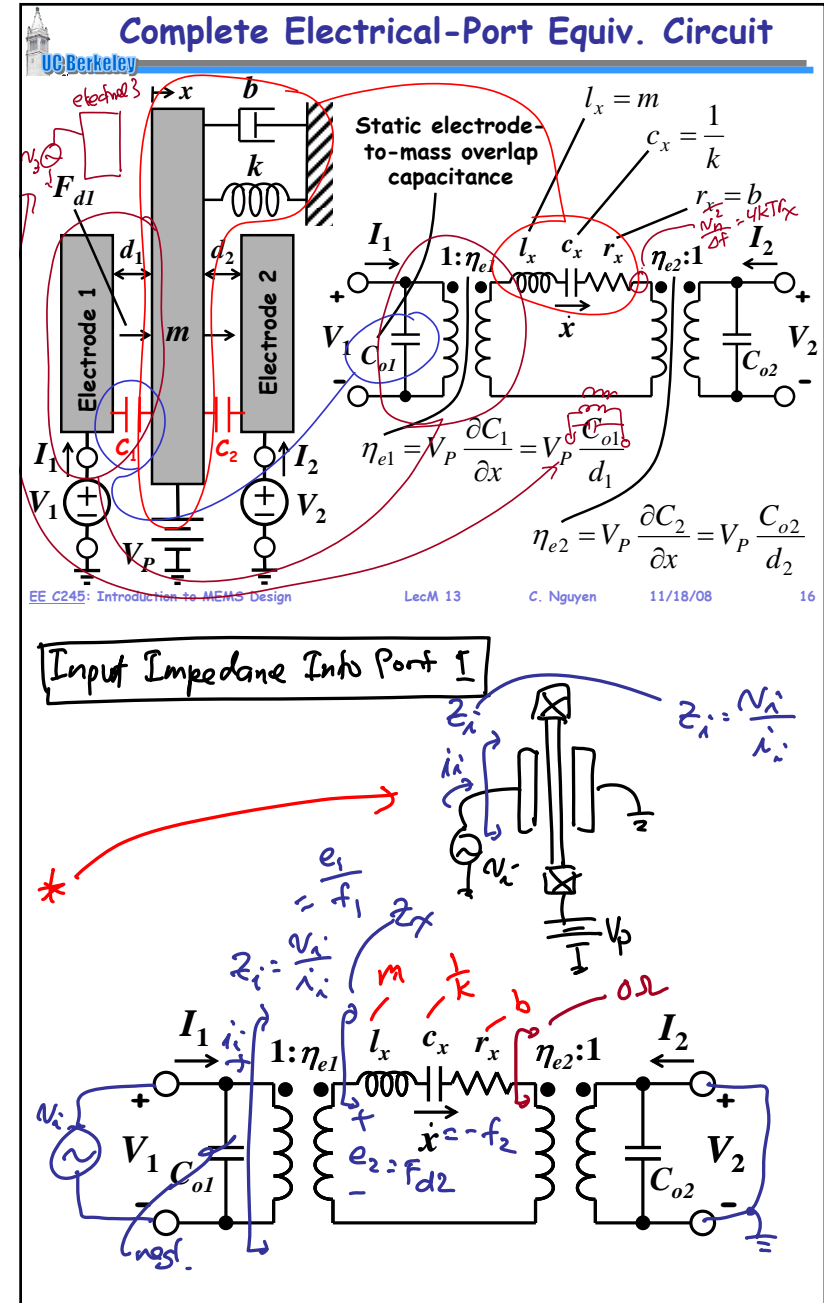 Complete Electrical-Port Equiv. Circuit
UC Berkeley
x
b
k
F_{d1}
d_1
d_2
m
Electrode 1
Electrode 2
C_1
C_2
I_1
I_2
V_1
V_2
V_P
Static electrode-
to-mass overlap
capacitance
l_x = m
c_x = \frac{1}{k}
r_x = b
\frac{\overline{v_n^2}}{\Delta f} = 4kTr_x
I_1
1:η_{e1}
l_x
c_x
r_x
η_{e2}:1
I_2
+
+
V_1
C_{o1}
ẋ
C_{o2}
V_2
-
-
η_{e1} = V_P \frac{∂C_1}{∂x} = V_P \frac{C_{o1}}{d_1}
η_{e2} = V_P \frac{∂C_2}{∂x} = V_P \frac{C_{o2}}{d_2}
EE C245: Introduction to MEMS Design LecM 13 C. Nguyen 11/18/08 16
Input Impedane Into Port 1
Z_i
Z_i = \frac{v_i}{i_i}
i_i
v_i
V_p
*
= \frac{e_1}{f_1}
Z_x
Z_i = \frac{v_i}{i_i}
m
\frac{1}{k}
b
0Ω
I_1
i_i
1:η_{e1}
l_x
c_x
r_x
η_{e2}:1
I_2
+
+
+
v_i
V_1
C_{o1}
ẋ = -f_2
e_2 = F_{d2}
C_{o2}
V_2
-
-
-
negl.